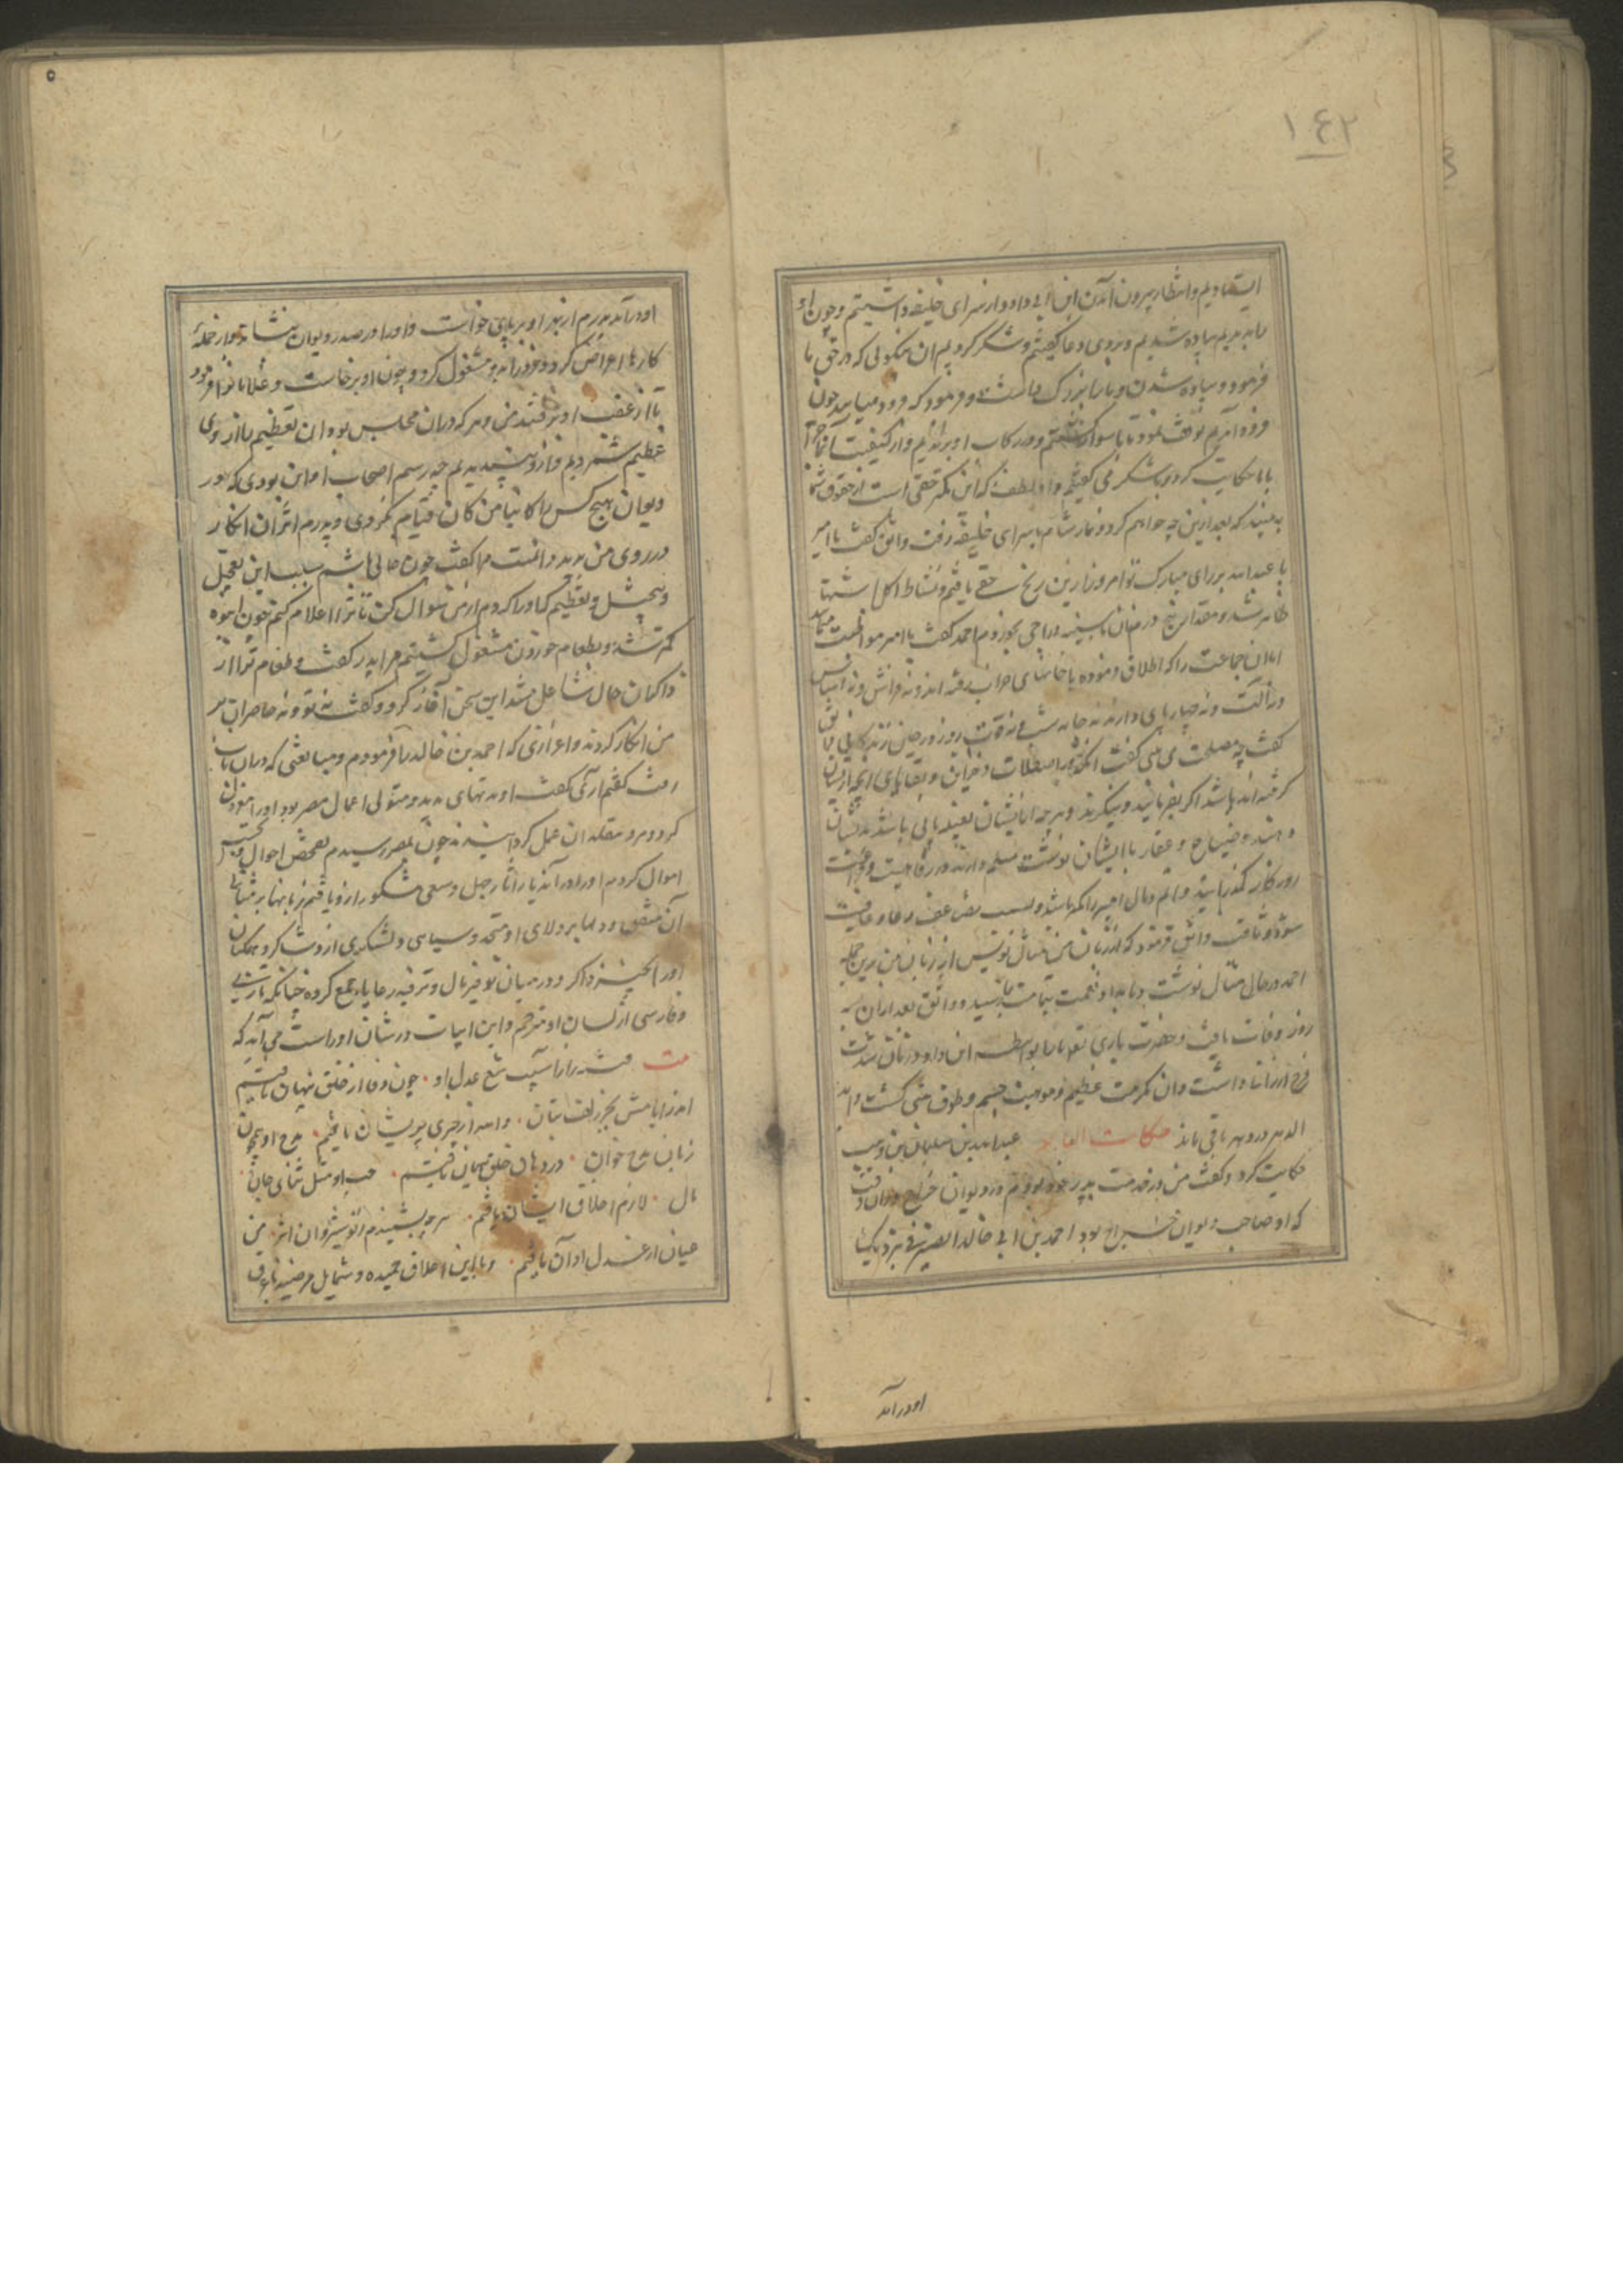 ١٤٢
ایستادیم وانتظار بیرون آمدن ابن ابی داود از سرای خلیفه داشتیم و چون او
ما بدید پیاده شدیم و بر وی دعا گفتیم و شکر کردیم ان نیکوئی که در حق ما
فرمود و پیاده شدن ما را بزرگ داشت و فرمود که فرود میایید چون
فرود آمدیم توقف نمود تا ما سوار گشتیم و در کاب او براندیم و از کیفیت
با ما حکایت کرد و ما شکر می گفتیم و او لطف که این کمتر حقی است از حقوق شما
به بینید که بعد ازین چه خواهم کرد و نماز شام با سرای خلیفه رفت واثق گفت یا
با عبدالله برای مبارک تو امروز ازین رنج خفتی یافتم و نشاط اکل اشتها
ظاهر شد و مقدار پنج درم نان با سینه دراجی بخوردم احمد گفت یا امیر
امان جماعت را که اطلاق فرموده با خانهای خراب رفته اند و نه فراش و نه اساس
و نه آلت و نه چهارپای دارند نه جامه شب و نه قوت روز در چنین زندگانی
گفت چه مصلحت می بینی گفت انکه از اصطبلات و خزاین و بقایای انچه ازیشان
گرفته اند باشد اگر بفرمائید و بنگرند و هر چه از ایشان بعینه باقی باشد بدیشان
دهند و ضیاع و عقار با ایشان نوشت مسلم دارند در رفاهیت و
روزگار گذرانید و اثم و بال امیر را کمتر باشد و بسبب تضاعف دعا و عافیت
واثق فرمود که از زبان من مثال نویس از زبان من بدین جمله
احمد در حال مثال نوشت و نامداد نعمت بتمامت رسید و واثق بعد ازان سه
روز وفات یافت و حضرت باری تعالی ما را بواسطه ابن داود ازان شدت
فرج ارزانی داشت وان مکرمت عظیم و موهبت جسیم و طوق منی گشت تا ابد
الدهر در و مهر باقی ماند حکایت عبدالله بن سلیمان بن وهب
حکایت کرد و گفت من در خدمت پدر خود بودم در دیوان خراج دران وقت
که او صاحب دیوان خراج بود احمد بن ابی خالد الصیرفی نزدیک ما
او درآمد
او درآمد پدرم از بهر او بر پای خواست و او را در صدر دیوان بنشاند و از جمله
کارها اعراض کرد و خود را بدو مشغول کرد و چون او برخاست و غلامانرا فرمود
تا از عقب او برفتند من و هر که دران مجلس بود ان تعظیم را از وی
عظیم شمردیم و ازو نپسندیدیم چه رسم اصحاب دواوین بودی که در
دیوان هیچ کس را کائنا من کان قیام نکردی و پدرم اثر ان انکار
در روی من بدید و دانست مرا گفت چون خالی باشم سبب این تبجیل
و تعظیم که او را کردم از من سوال کن تا ترا اعلام کنم چون انبوه
کمتر شد و بطعام خوردن مشغول گشتیم مرا پدر گفت طعام ترا از
ذاکران حال شاغل شد این سخن آغاز کرد و گفت نه تو و نه حاضران بر
من انکار کردند و اعزازی که احمد بن خالد را فرمودم و مبالغتی که دران باب
رفت گفتم اری گفت او مدتهای مدید متولی اعمال مصر بود او را معزول
کرد و مرو متقلد ان عمل گردانیدند چون بمصر رسیدم تفحص احوال و
اموال کردم او را در آن دیار آثار جمیل و سعی مشکور ازو یافتم زبانها بر ثنای
آن متفق و دلها بر ولای او متحد و سپاهی و لشکری ازو شاکر و همکنان
او را بخیر ذاکر و در میان توفیر مال و ترفیه رعایا جمع کرده چنانکه تازی
و فارسی از لسان او مترجم و این ابیات در شان او راست می آید که
بیت فتنه را ز آسیب تیغ عدل او • چون وفا از خلق پنهان یافتیم
اندر ایامش بجز زلف بتان • والله ار چیزی پریشان یافتیم • مدح او چون
زبان مدح خوان • در دهان خلق یکسان یافتیم • حب او مثل ثنای جان
مال • لازم اخلاق انسان یافتم • هر چه بشنیدم ز نوشیروان اثر من
عیان از عدل او آن یافتم • و با این اخلاق حمیده و شمایل مرضیه